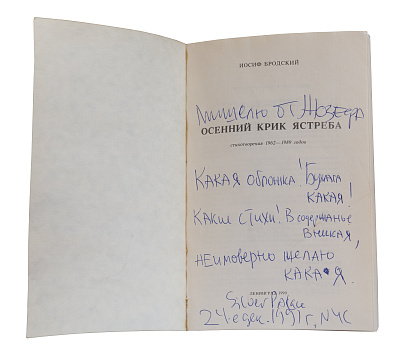 ИОСИФ БРОДСКИЙ
Мишелю от Жозефа
ОСЕННИЙ КРИК ЯСТРЕБА
стихотворения 1962—1989 годов
КАКАЯ обложка! Бумага
КАКАЯ!
Какие стихи! В содержанье
вникая,
неимоверно желаю
КАКА Я.
ЛЕНИНГРАД 1990
24-е дек. 1991 г, NYC